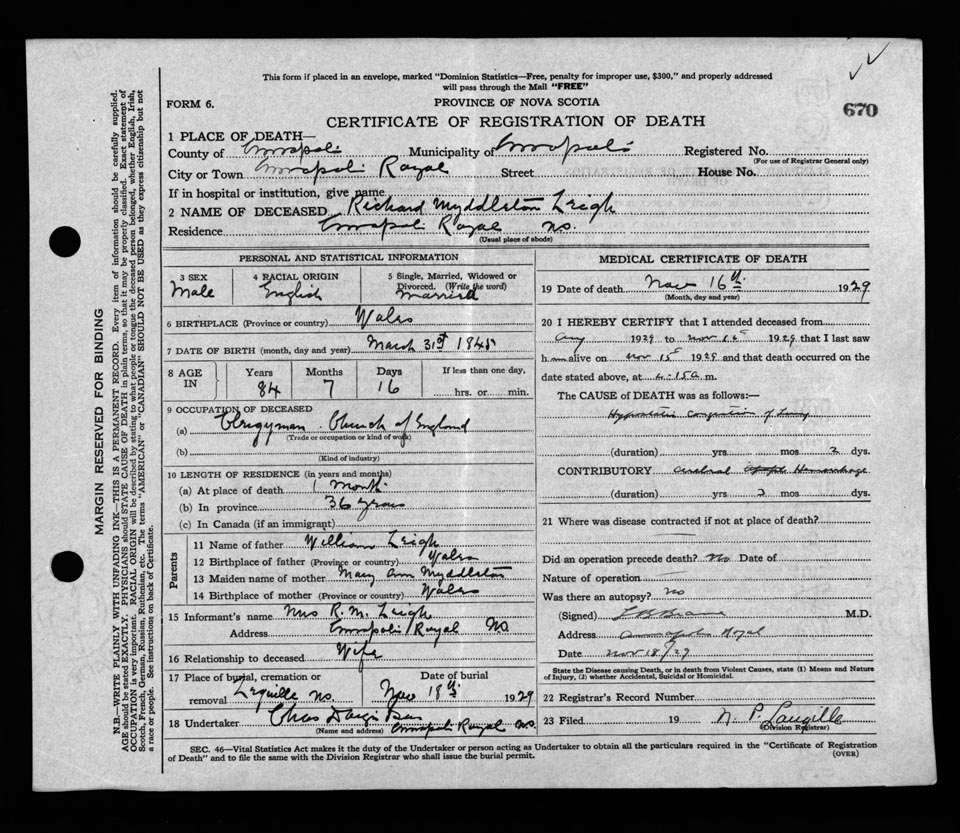 This form if placed in an envelope, marked "Dominion Statistics—Free, penalty for improper use, $300," and properly addressed
will pass through the Mail "FREE"
FORM 6.
PROVINCE OF NOVA SCOTIA
670
CERTIFICATE OF REGISTRATION OF DEATH
1 PLACE OF DEATH—
County of Annapolis Municipality of Annapolis Registered No.
(For use of Registrar General only)
City or Town Annapolis Royal Street House No.
If in hospital or institution, give name
2 NAME OF DECEASED Richard Myddleton Leigh
Residence Annapolis Royal N.S.
(Usual place of abode)
PERSONAL AND STATISTICAL INFORMATION
3 SEX Male
4 RACIAL ORIGIN English
5 Single, Married, Widowed or Divorced. (Write the word) Married
6 BIRTHPLACE (Province or country) Wales
7 DATE OF BIRTH (month, day and year) March 31st 1845
8 AGE IN Years 84 Months 7 Days 16 If less than one day, hrs. or min.
9 OCCUPATION OF DECEASED
(a) Clergyman Church of England
(Trade or occupation or kind of work)
(b)
(Kind of industry)
10 LENGTH OF RESIDENCE (in years and months)
(a) At place of death 1 Month
(b) In province 36 years
(c) In Canada (if an immigrant)
Parents
11 Name of father William Leigh
12 Birthplace of father (Province or country) Wales
13 Maiden name of mother Mary Ann Myddleton
14 Birthplace of mother (Province or country) Wales
15 Informant's name Mrs R. M. Leigh
Address Annapolis Royal N.S.
16 Relationship to deceased Wife
17 Place of burial, cremation or removal Lequille N.S.
Date of burial Nov 18th 1929
18 Undertaker Chas
(Name and address) Annapolis Royal N.S.
MEDICAL CERTIFICATE OF DEATH
19 Date of death Nov 16th 1929
(Month, day and year)
20 I HEREBY CERTIFY that I attended deceased from
Aug 1929 to Nov 1929 that I last saw
h im alive on Nov 15 1929 and that death occurred on the
date stated above, at 4.15 a m.
The CAUSE of DEATH was as follows:—
Hypostatic Congestion of Lung
(duration) yrs mos 2 dys.
CONTRIBUTORY Cerebral Hemorrhage
(duration) yrs 3 mos dys.
21 Where was disease contracted if not at place of death?
Did an operation precede death? No Date of
Nature of operation
Was there an autopsy? No
(Signed) M.D.
Address Annapolis Royal
Date Nov 18/29
State the Disease causing Death, or in death from Violent Causes, state (1) Means and Nature
of Injury, (2) whether Accidental, Suicidal or Homicidal.
22 Registrar's Record Number
23 Filed 19 N. P. Langille
(Division Registrar)
SEC. 46—Vital Statistics Act makes it the duty of the Undertaker or person acting as Undertaker to obtain all the particulars required in the "Certificate of Registration
of Death" and to file the same with the Division Registrar who shall issue the burial permit.
(OVER)
MARGIN RESERVED FOR BINDING
N.B.—WRITE PLAINLY WITH UNFADING INK—THIS IS A PERMANENT RECORD. Every item of information should be carefully supplied.
AGE should be stated EXACTLY. PHYSICIANS should STATE CAUSE OF DEATH in plain terms, so that it may be properly classified. Exact statement of
OCCUPATION is very important. RACIAL ORIGIN will be described by stating to what people or tongue the deceased person belonged, whether English, Irish,
Scotch, French, German, Russian, Ruthenian, etc. The terms "AMERICAN" or "CANADIAN" SHOULD NOT BE USED as they express citizenship but not
a race or people. See instructions on back of Certificate.